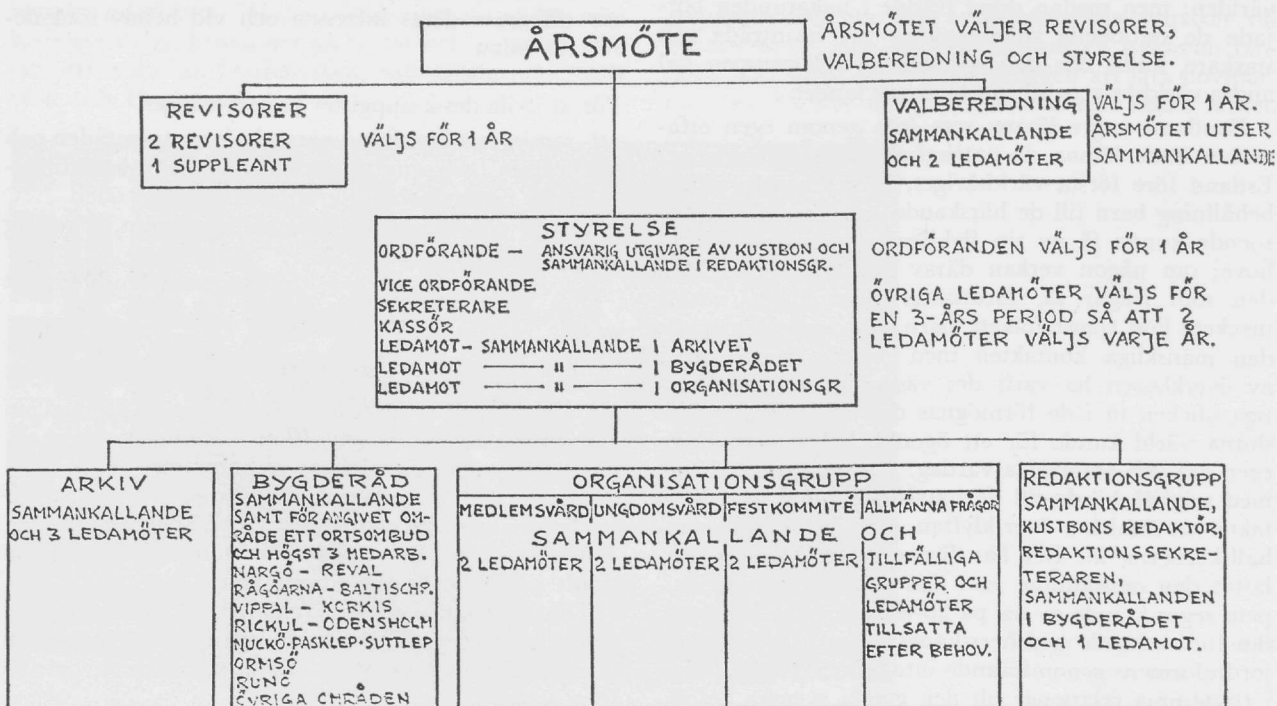 ÅRSMÖTE
ÅRSMÖTET VÄLJER REVISORER,
VALBEREDNING OCH STYRELSE.
REVISORER
2 REVISORER
1 SUPPLEANT
VÄLJS FÖR 1 ÅR
VALBEREDNING
SAMMANKALLANDE
OCH 2 LEDAMÖTER
VÄLJS FÖR 1 ÅR.
ÅRSMÖTET UTSER
SAMMANKALLANDE
STYRELSE
ORDFÖRANDE – ANSVARIG UTGIVARE AV KUSTBON OCH
SAMMANKALLANDE I REDAKTIONSGR.
VICE ORDFÖRANDE
SEKRETERARE
KASSÖR
LEDAMOT – SAMMANKALLANDE I ARKIVET
LEDAMOT — " — I BYGDERÅDET
LEDAMOT — " — I ORGANISATIONSGR
ORDFÖRANDEN VÄLJS FÖR 1 ÅR
ÖVRIGA LEDAMÖTER VÄLJS FÖR
EN 3-ÅRS PERIOD SÅ ATT 2
LEDAMÖTER VÄLJS VARJE ÅR.
ARKIV
SAMMANKALLANDE
OCH 3 LEDAMÖTER
BYGDERÅD
SAMMANKALLANDE
SAMT FÖR ANGIVET OM-
RÅDE ETT ORTSOMBUD
OCH HÖGST 3 MEDARB.
NARGÖ – REVAL
RÅGÖARNA – BALTISCHP.
VIPPAL – KORKIS
RICKUL – ODENSHOLM
NUCKÖ-PASKLEP-SUTTLEP
ORMSÖ
RUNÖ
ÖVRIGA OMRÅDEN
ORGANISATIONSGRUPP
MEDLEMSVÅRD UNGDOMSVÅRD FESTKOMMITÉ
SAMMANKALLANDE
2 LEDAMÖTER 2 LEDAMÖTER 2 LEDAMÖTER
ALLMÄNNA FRÅGOR
OCH
TILLFÄLLIGA
GRUPPER OCH
LEDAMÖTER
TILLSATTA
EFTER BEHOV.
REDAKTIONSGRUPP
SAMMANKALLANDE,
KUSTBONS REDAKTÖR,
REDAKTIONSSEKRE-
TERAREN,
SAMMANKALLANDEN
I BYGDERÅDET
OCH 1 LEDAMOT.